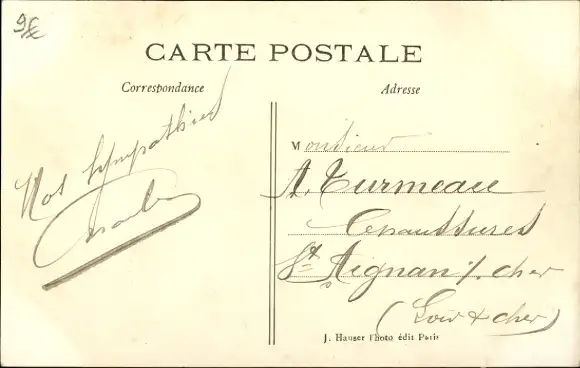 9f
CARTE POSTALE
Correspondance
Adresse
Nos Sympathies
Charles
Monsieur
A. Turmeau
Chaussures
St Aignan s/. cher
(Loir & cher)
J. Hauser Photo édit Paris